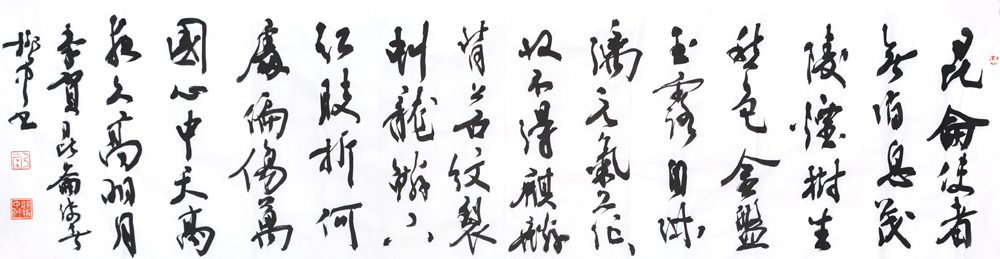 昆侖使者
無消息茂
陵煙樹生
愁色金盤
玉露自淋
漓元氣茫〻
收不得麒麟
背上石紋裂
虬龍鱗下
紅肢折何
處偏傷萬
國心中天高
夜久高明月
李賀昆侖使者